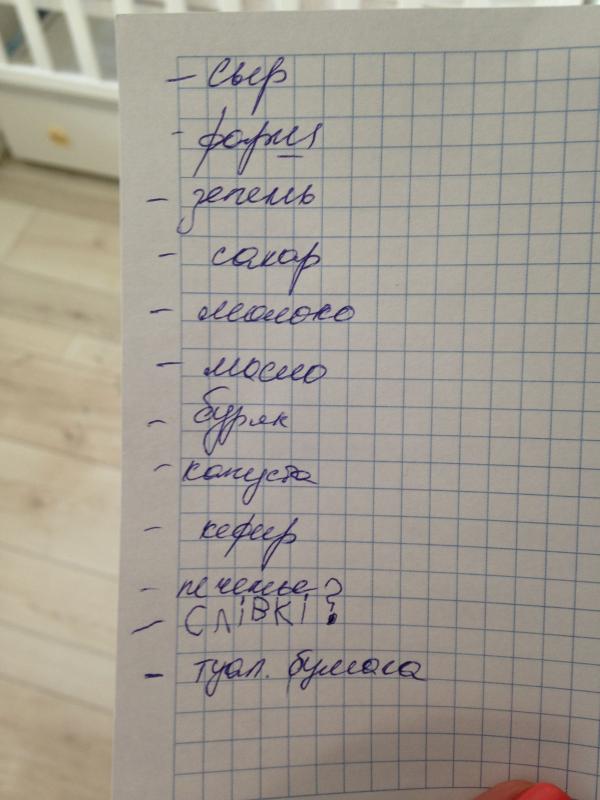 - сыр
- фарш
- зелень
- сахар
- молоко
- масло
- буряк
- капуста
- кефир
- печенье?
- СЛІВКІ?
- туал. бумага